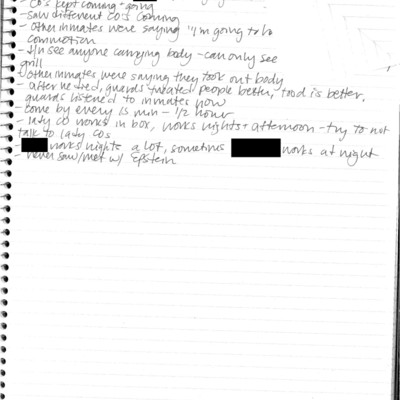 - CO's kept coming + going
- saw different CO's coming
- other inmates were saying "I'm going to
commotion
- see anyone carrying body - can only see
grill
- other inmates were saying they took out body
- after he died, guards treated people better, food is better,
guards listened to inmates now
- come by every 15 min - 1/2 hour
- lady CO works in box, works nights + afternoon - try to not
talk to lady COs
- works nights a lot, sometimes works at night
- never saw/met w/ Epstein